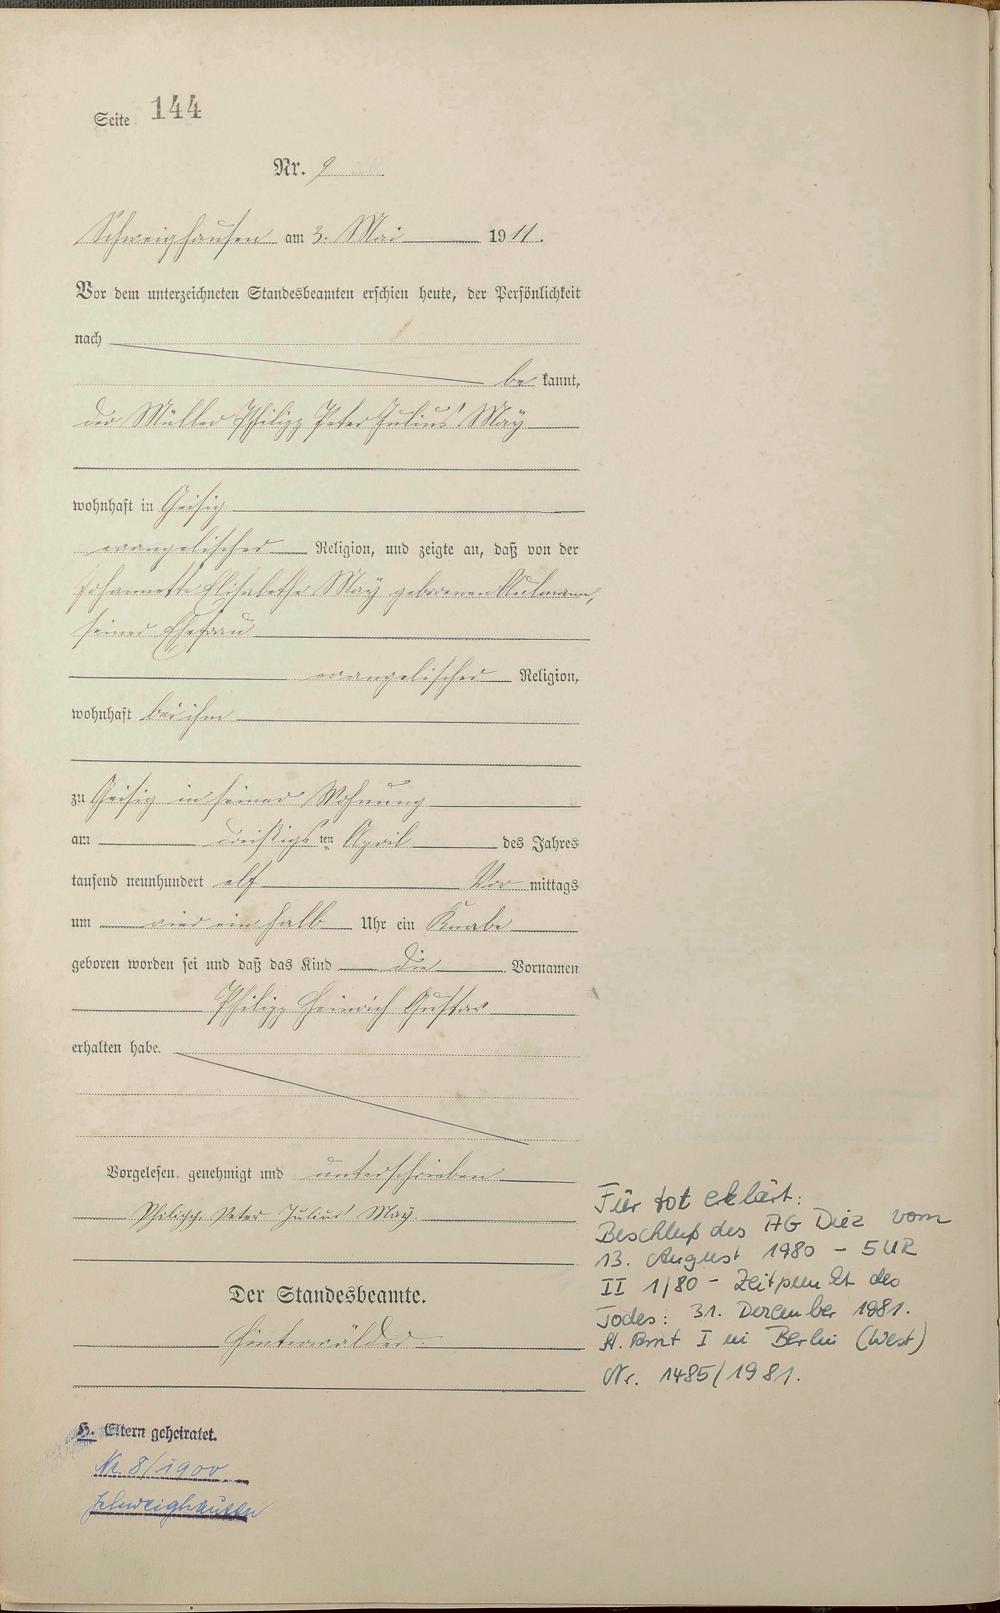 Seite 144
Nr. 9
Schweighausen am 3. Mai 1911.
Vor dem unterzeichneten Standesbeamten erschien heute, der Persönlichkeit
nach
be kannt,
der Müller Philipp Peter Julius May
wohnhaft in Geisig
evangelischer Religion, und zeigte an, daß von der
Johannette Elisabethe May geborenen
seiner Ehefrau
evangelischer Religion,
wohnhaft bei ihm
zu Geisig in seiner Wohnung
am dreißigsten April des Jahres
tausend neunhundert elf Vor mittags
um vier ein halb Uhr ein Knabe
geboren worden sei und daß das Kind die Vornamen
Philipp Heinrich Gustav
erhalten habe.
Vorgelesen, genehmigt und unterschrieben
Philipp Peter Julius May
Der Standesbeamte.
Hinterwälder
H. Eltern geheiratet.
Nr. 8/1900
Schweighausen
Für tot erklärt:
Beschluß des AG Diez vom
13. August 1980 – 5 UR
II 1/80 – Zeitpunkt des
Todes: 31. Dezember
St. Amt I in Berlin (West)
Nr. 1485/1981.